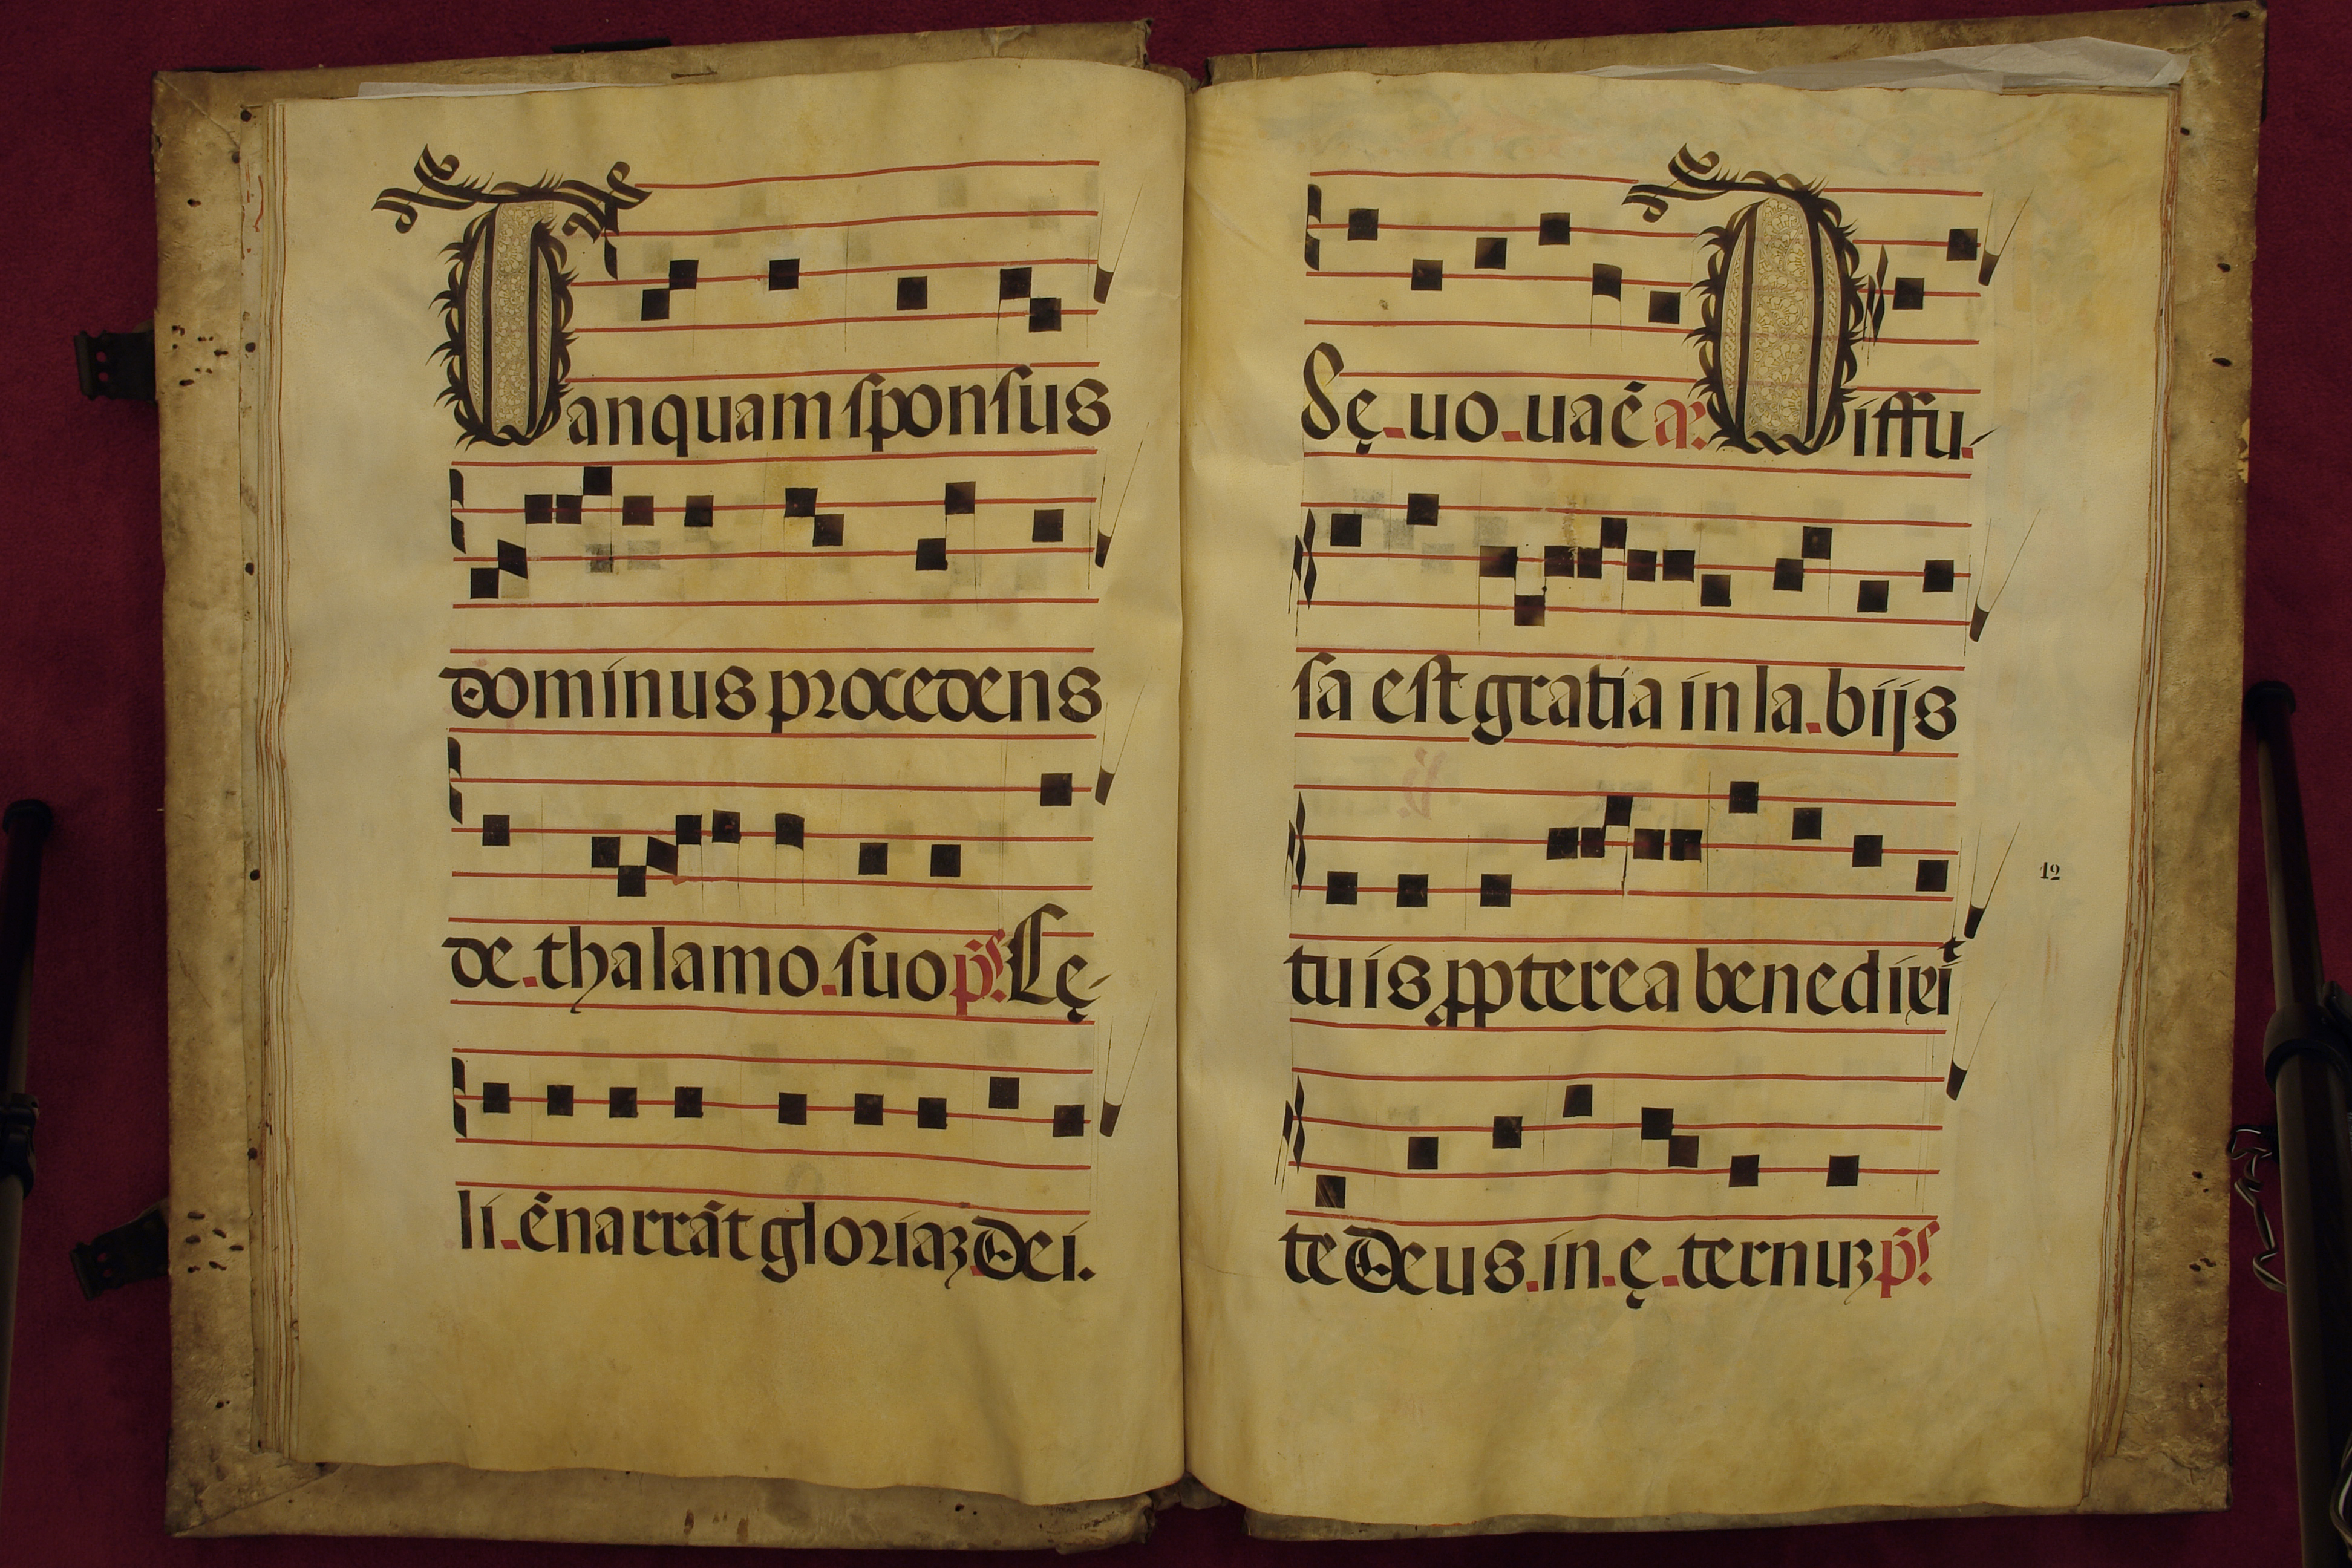 Tanquam sponsus
dominus procedens
de thalamo suo ps. Cę-
li enarrāt gloriaꝫ Dei.
Sę uo uaē añ. Diffu
sa est gratia in labijs
tuis ꝓpterea benedixit
te Deus in ęternuꝫ ps.
12